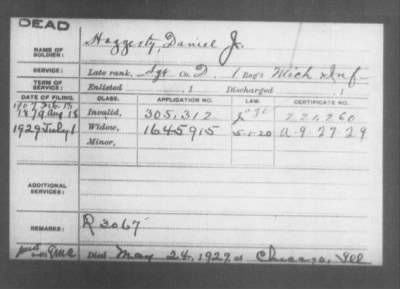 DEAD
NAME OF SOLDIER: Haggerty, Daniel J.
SERVICE: Late rank, Sgt Co. D, 1 Reg't Mich Inf
TERM OF SERVICE: Enlisted , 1 Discharged , 1
DATE OF FILING. CLASS. APPLICATION NO. LAW. CERTIFICATE NO.
1879 Aug 18 Invalid, 305,312 221,760
1929 July 1 Widow, 1645915 5-1-20 A-9-27-29
Minor,
ADDITIONAL SERVICES:
REMARKS: R 3067
Died May 24, 1929 at Chicago, Ill